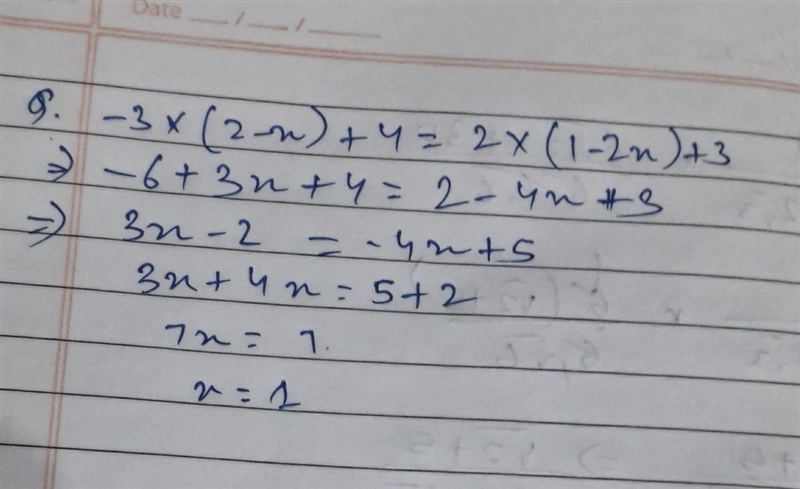 Date __/__/____
Q. -3 × (2-x) + 4 = 2 × (1-2x) + 3
⇒ -6 + 3x + 4 = 2 - 4x + 3
⇒ 3x - 2 = -4x + 5
3x + 4x = 5 + 2
7x = 7.
x = 1